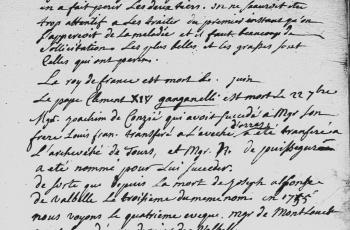 en a fait perir les deux tiers. on ne scauroit etre
trop attentif a les traiter du premier instant qu'on
s'apperçoit de la maladie et il faut beaucoup de
sollicitation. Les plus belles et les grasses sont
celles qui ont
Le roy de france est mort le . juin
Le pape Clement XIV ganganelli est mort le 22 7bre
Mgr. joachim de Conzié qui avoit succedé a Mgr son
frere Louis fran. transferé a l'eveché d'arras a été transferé a
L'archevéché de Tours, et Mgr. de puisegur
a eté nommé pour lui succeder.
de sorte que depuis la mort de joseph alfonse
de valbelle le troisieme du meme nom en 1755
nous voyons le quatrième eveque. mgr de Montlouet